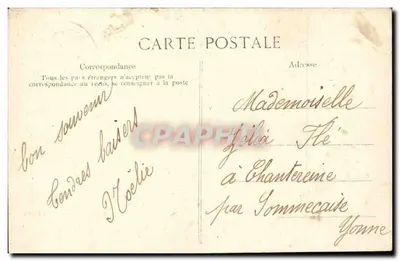 CARTE POSTALE
Correspondance
Tous les pays étrangers n'acceptent pas la
correspondance au verso, se renseigner à la poste
Adresse
bon souvenir
tendres baisers
Noëlie
Mademoiselle
à Chantereine
par Sommecaise
Yonne
CPAPHIL